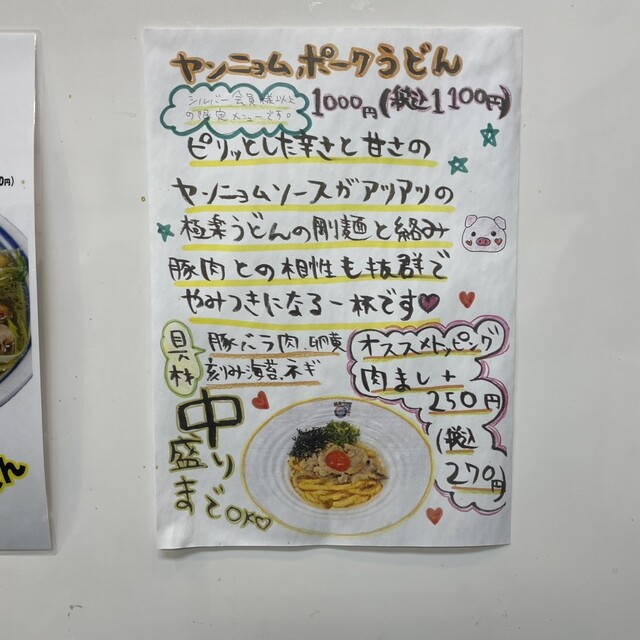 ヤンニョムポークうどん
シルバー会員様以上
の限定メニューです。
1000円(税込1100円)
ピリッとした辛さと甘さの
ヤンニョムソースがアツアツの
極楽うどんの剛麺と絡み
豚肉との相性も抜群で
やみつきになる一杯です
具材
豚バラ肉、卵黄
刻み海苔、ネギ
オススメトッピング
肉まし+
250円
(税込
270円)
中盛りまでOK
0円)
ん